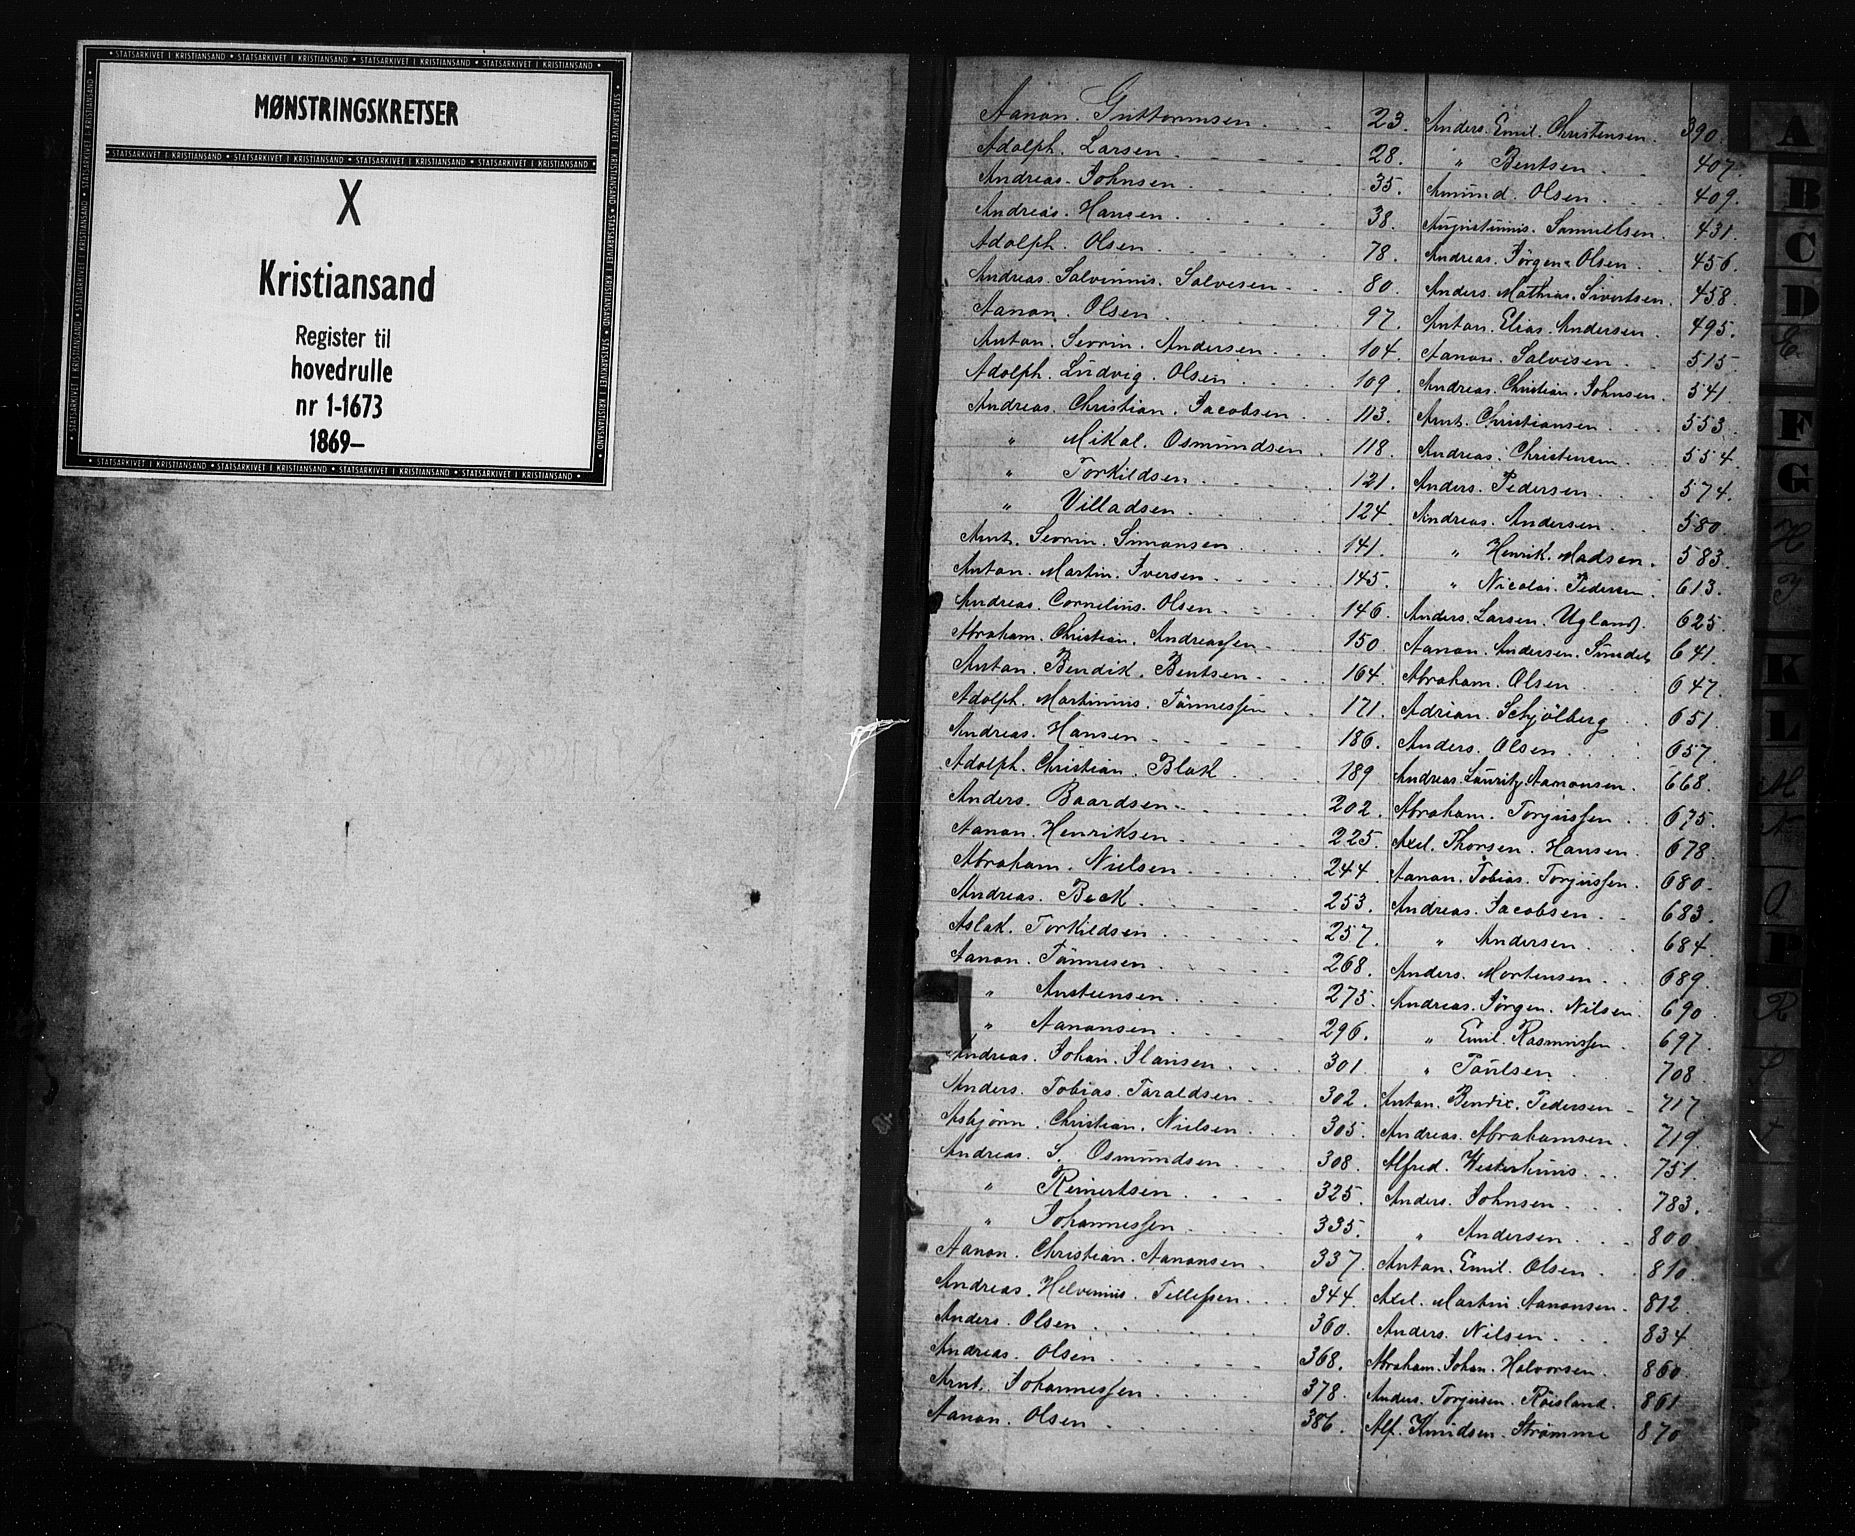 MØNSTRINGSKRETSER
X
Kristiansand
Register til
hovedrulle
nr 1-1673
1869–
Aanon. Guttormsen 23.
Adolph. Larsen 28.
Andreas. Johnsen 35.
Andreas. Hansen 38.
Adolph. Olsen 78.
Andreas. Salvinnis. Salvesen 80.
Aanon. Olsen 97.
Anton. Sevrin. Andersen 104.
Adolph. Ludvig. Olsen 109.
Andreas. Christian. Jacobsen 113.
" Mikal. Osmundsen 118.
" Torkildsen 121.
" Villadsen 124.
Arnt. Sevrin. Simonsen 141.
Anton. Martin. Iversen 145.
Andreas. Cornelius. Olsen 146.
Abraham. Christian. Andreassen 150.
Anton. Bendik. Bentsen 164.
Adolph. Martinius. Tönnessen 171.
Andreas. Hansen 186.
Adolph. Christian. Blak 189
Anders. Baardsen 202.
Aanon. Henriksen 225.
Abraham. Nielsen 244
Andreas. Beck 253.
Aslak. Torkildsen 257.
Aanon. Tönnesen 268.
" Austensen 275.
" Aanonsen 296.
Andreas. Johan. Hansen 301
Anders. Tobias. Taraldsen 302
Asbjørn. Christian. Nielsen 305.
Andreas. S. Osmundsen 308.
" Reinertsen 325.
" Johannessen 335.
Aanon. Christian. Aanonsen 337.
Andreas. Helvinius. Tellefsen 344.
Anders. Olsen 360.
Andreas. Olsen 368.
Arnt. Johannessen 378.
Aanon. Olsen 386.
Anders. Emil. Christensen 390.
" Bentsen 407.
Amund. Olsen 409.
Augustinius. Samuelsen 431.
Andreas. Jørgen. Olsen 456.
Anders. Mathias. Sivertsen 458.
Anton. Elias. Andersen 495.
Aanon. Salvesen 515
Andreas. Christian. Johnsen 541
Arnt. Christiansen 553.
Andreas. Christensen 554.
Anders. Pedersen 574.
Andreas. Andersen 580.
" Henrik. Madsen 583.
" Nicolai. Pedersen 613.
Anders. Larsen. Ugland 625.
Aanon. Andersen. 641.
Abraham. Olsen 647.
Adrian. Schjölberg 651.
Anders. Olsen 657.
Andreas. Lauritz. Aanonsen 668.
Abraham. Torjussen 675.
Axel. Thorsen. Hansen 678.
Aanon. Tobias. Torjussen 680.
Andreas. Jacobsen 683.
" Andersen 684.
Anders. Mortensen 689.
Andreas. Jørgen. Nilsen 690.
" Emil. Rasmussen 697.
" Paulsen 708.
Anton. Bendix. Pedersen 717
Andreas. Abrahamsen 719.
Alfred. Westerhuus 751.
Anders. Johnsen 783.
" Andersen 800.
Anton. Emil. Olsen 810.
Axel. Martin. Aanonsen 812.
Anders. Nilsen 834.
Abraham. Johan. Halvorsen 860.
Anders. Torjusen. Røisland. 861
Alf. Knudsen. Strømme 870
A
B
C
D
E
F
G
H
I
K
L
M
N
O
P
R
S
T